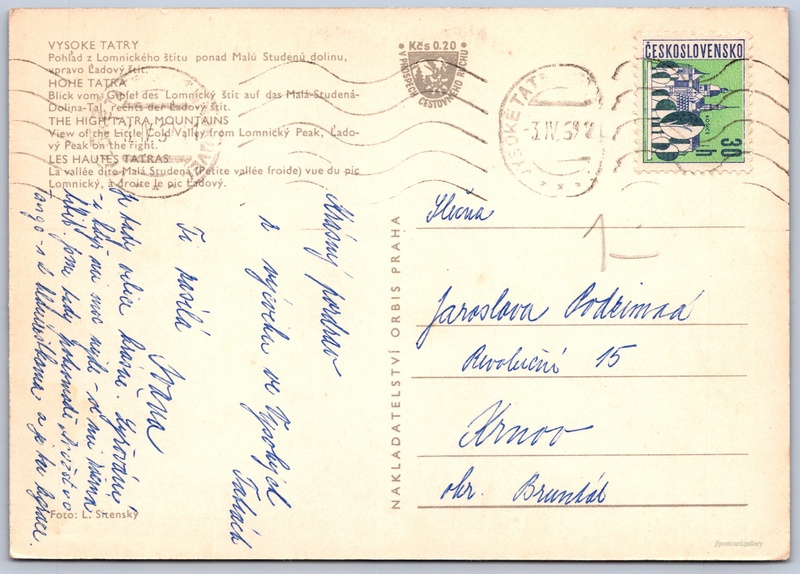 VYSOKÉ TATRY
Pohľad z Lomnického štítu ponad Malú Studenú dolinu,
vpravo Ľadový štít.
HOHE TATRA
Blick vom Gipfel des Lomnický štít auf das Malá-Studená-
Dolina-Tal, rechts der Ľadový štít.
THE HIGH TATRA MOUNTAINS
View of the Little Cold Valley from Lomnický Peak, Ľado-
vý Peak on the right.
LES HAUTES TATRAS
La vallée dite Malá Studená (Petite vallée froide) vue du pic
Lomnický, à droite le pic Ľadový.
Krásný pozdrav
z výcviku ve Vysokých
Tatrách
Ti posílá
Ivana
Je tady velice krásně. Lyžování
- i když mi moc nejde - se mi
líbí. Jsme tady
tango - s a je tu legrace.
Foto: L. Sitenský
NAKLADATELSTVÍ ORBIS PRAHA
Kčs 0.20
V PROSPĚCH CESTOVNÉHO RUCHU
VYSOKÉ TATRY
-3.IV.69
ČESKOSLOVENSKO
KOŠICE
30 h
Slečna
Jaroslava Podzimná
Revoluční 15
Krnov
okr. Bruntál